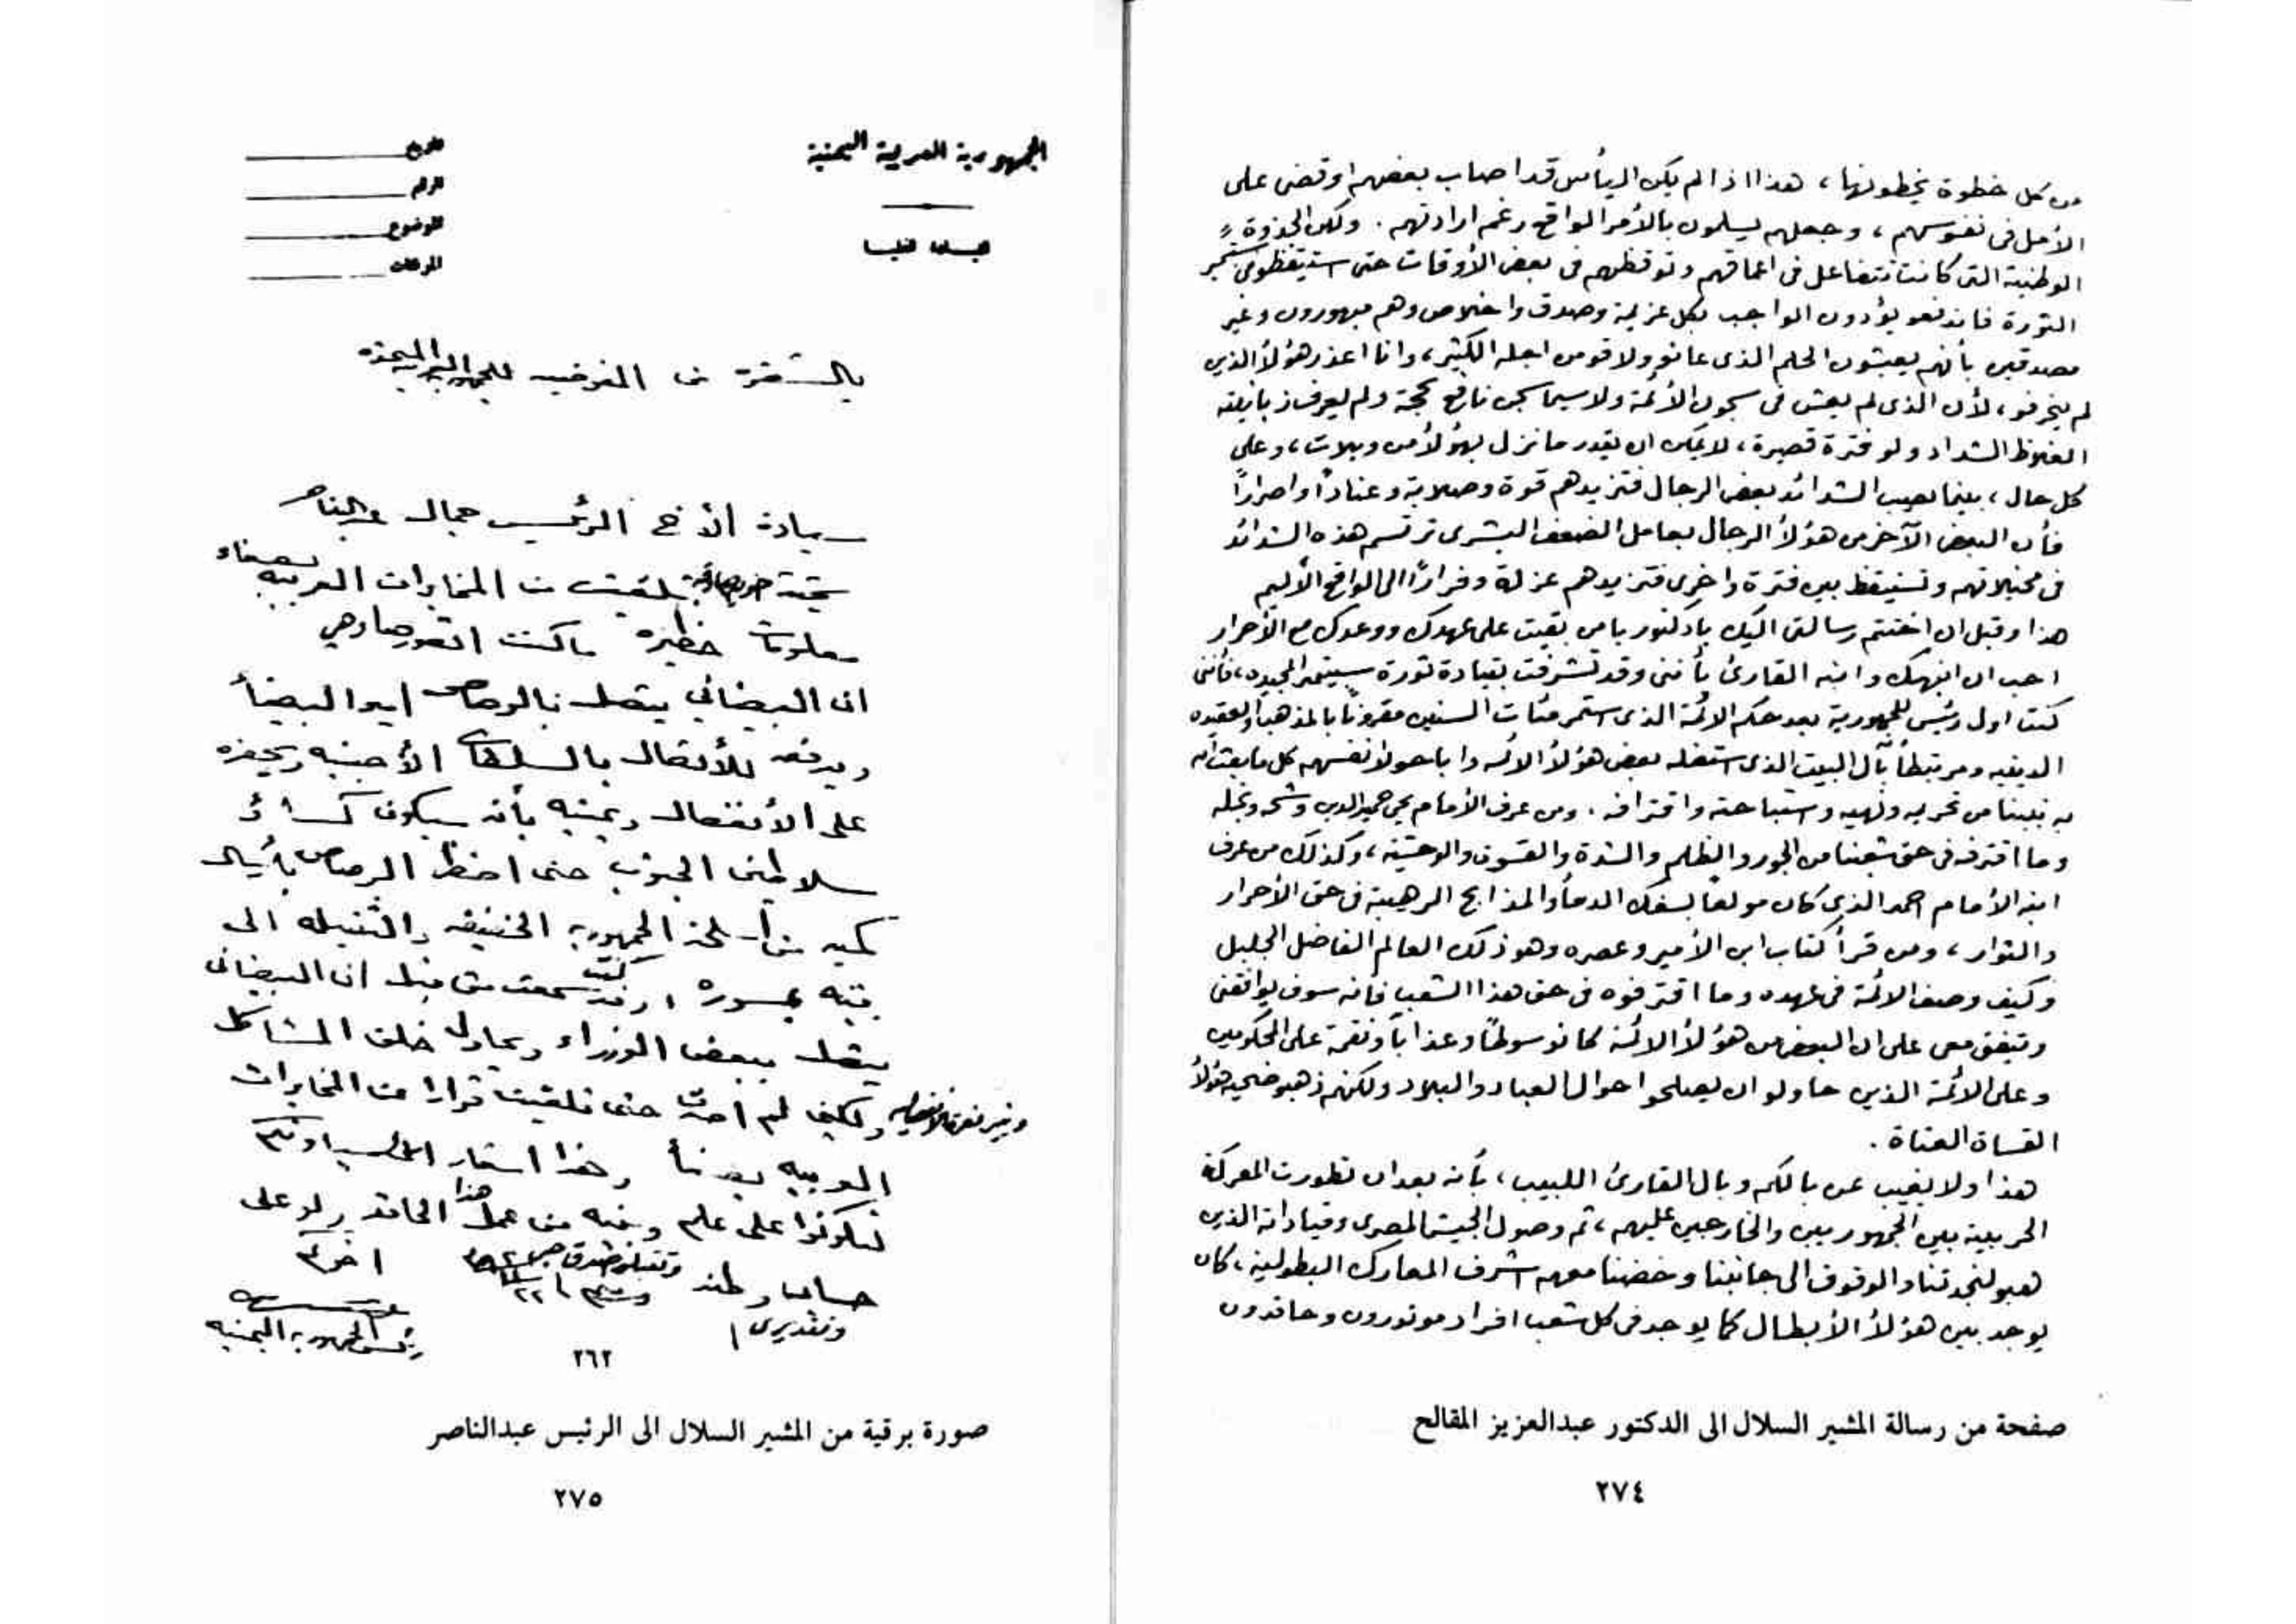 من كل خطوة يخطونها، هذا اذا لم يكن اليأس قد اصاب بعضهم او قضى على
الأمل في نفوسهم، وجعلهم يسلمون بالأمر الواقع رغم ارادتهم. ولكن الجذوة
الوطنية التى كانت تتفاعل فى اعماقهم وتوقظهم فى بعض الأوقات حتى استيقظو
الثورة فاندفعو يؤدون الواجب بكل عزيمة وصدق واخلاص وهم مبهورون وغير
مصدقين بأنهم يعيشون الحلم الذى عانو ولاقو من اجله الكثير، وانا اعذر هؤلأ الذين
لم ينحرفو، لأن الذى لم يعش فى سجون الأئمة ولا سيما سجن نافع بحجة ولم يعرف زبانيته
الغلاظ الشداد ولو فترة قصيرة، لا يمكن ان يقدر ما نزل بهؤلأ من ويلات، وعلى
كل حال، بينما تصيب الشدائد بعض الرجال فتزيدهم قوة وصلابة وعناداً واصراراً
فأن البعض الآخر من هؤلأ الرجال بعامل الضعف البشرى ترتسم هذه الشدائد
فى مخيلاتهم وتستيقظ بين فترة واخرى فتزيدهم عزلة وفراراً الى الواقع الأليم
هذا وقبل ان اختتم رسالتى اليك يا دكتور يا من بقيت على عهدك ووعدك مع الأحرار
احب ان انبهك وانبه القارئ بأننى وقد تشرفت بقيادة ثورة سبتمبر المجيده، فأننى
كنت اول رئيس للجمهورية بعد حكم الائمة الذى استمر مئات السنين مقروناً بالمذهب والعقيده
الدينيه ومرتبطاً بآل البيت الذى استغله بعض هؤلأ الائمه واباحو لانفسهم كل ما بعث الله
به نبينا من تحريمه ونهيه واستباحته واقترافه. ومن عرف الأمام يحي حميد الدين وشحه وبخله
وما اقترفه فى حق شعبنا من الجور والظلم والشدة والقسوة والوحشية، وكذلك من عرف
ابنه الأمام احمد الذى كان مولعاً بسفك الدمأ والمذابح الرهيبة فى حق الأحرار
والثوار، ومن قرأ كتاب ابن الأمير وعصره وهو ذلك العالم الفاضل الجليل
وكيف وصف الائمة فى عهده وما اقترفوه فى حق هذا الشعب فأنه سوف يوافقنى
ويتفق معى على ان البعض من هؤلأ الائمة كانو سوطاً وعذاباً ونقمة على المحكومين
وعلى الائمة الذين حاولو ان يصلحوا احوال العباد والبلاد ولكنهم ذهبو ضحية هؤلأ
القساة العتاة.
هذا ولا يغيب عن بالكم وبال القارئ اللبيب، بأنه بعد ان تطورت المعركة
الحربية بين الجمهوريين والخارجين عليهم، ثم وصول الجيش المصرى وقياداته الذين
هبو لنجدتنا والوقوف الى جانبنا وخضنا معهم اشرف المعارك البطولية، كان
يوجد بين هؤلأ الأبطال كما يوجد فى كل شعب افراد موتورون وحاقدون
صفحة من رسالة المشير السلال الى الدكتور عبدالعزيز المقالح
٢٧٤
الجمهورية العربية اليمنية
التاريخ
الرقم
الموضوع
المرفقات
بالشفرة من المفوضيه للجمهوريه العربيه اليمنيه
سيادة الأخ الرئيس جمال عبدالناصر
تحية اخويه صادقة تلقيت من المخابرات العربيه بصنعاء
معلومات خطيره ما كنت اتصورها وهي
ان البيضاني يتصل بالرصاص امير البيضأ
ويدفعه للأتصال بالسلطات الأجنبيه ويحفزه
على الأنفصال ويمنيه بأنه سيكون كسائر
سلاطين الجنوب حتى اضطر الرصاص بأرسال
كميه من أسلحة الجمهوريه الخفيفه والثقيله الى
كنت سمعت من قبل ان البيضانى
يتصل ببعض الوزراء ويحاول خلق المشاكل
ولكن لم اصدق حتى تلقيت قرارا من المخابرات
العربيه بصنعأ وهذا اشعار الى سيادتكم
لتكونوا على علم وبينه من عمل هذا الحاقد ولو على
حساب وطنه وتقبلو صدق
وتقديرى
اخوكم
رئيس الجمهوريه اليمنيه
٢٦٢
صورة برقية من المشير السلال الى الرئيس عبدالناصر
٢٧٥